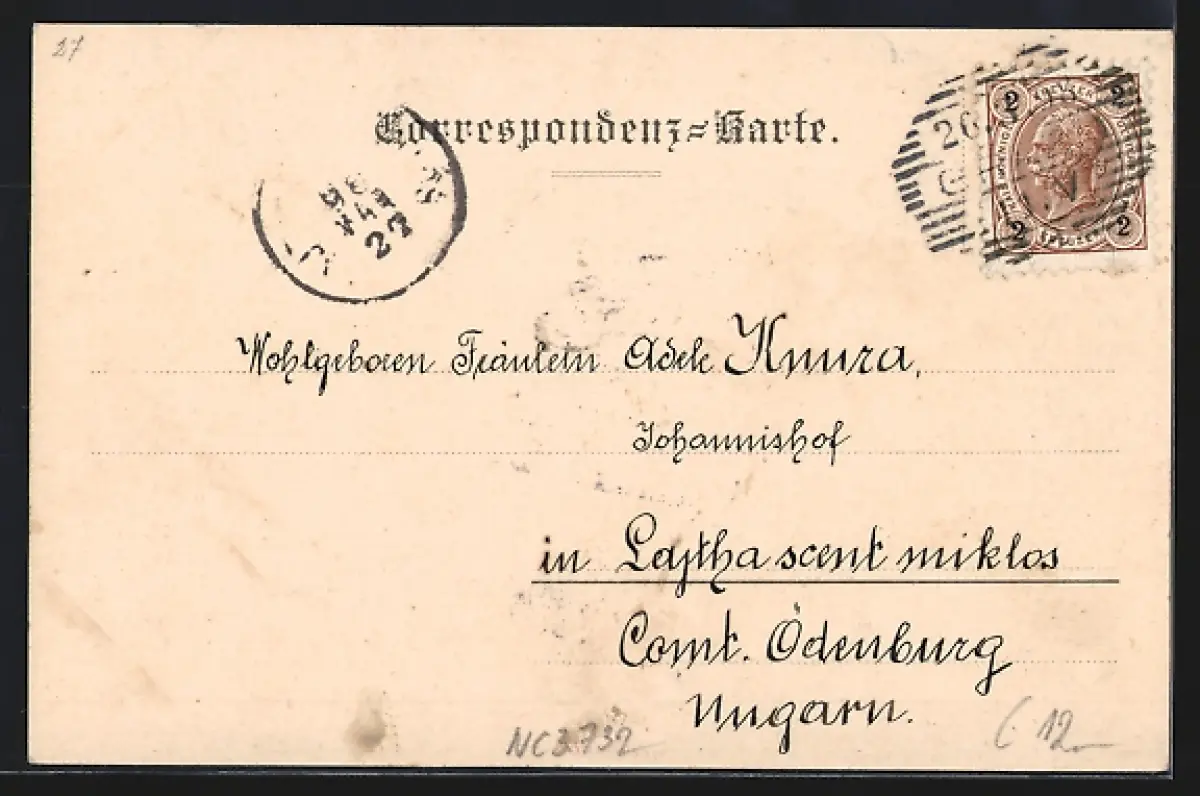 27
Correspondenz=Karte.
2 KREUZER 2
2 2
26.
98
MAI
27
Wohlgeboren Fräulein Adele Knura,
Johannishof
in Lajtha scent miklos
Comt. Ödenburg
Ungarn.
NC3732
12